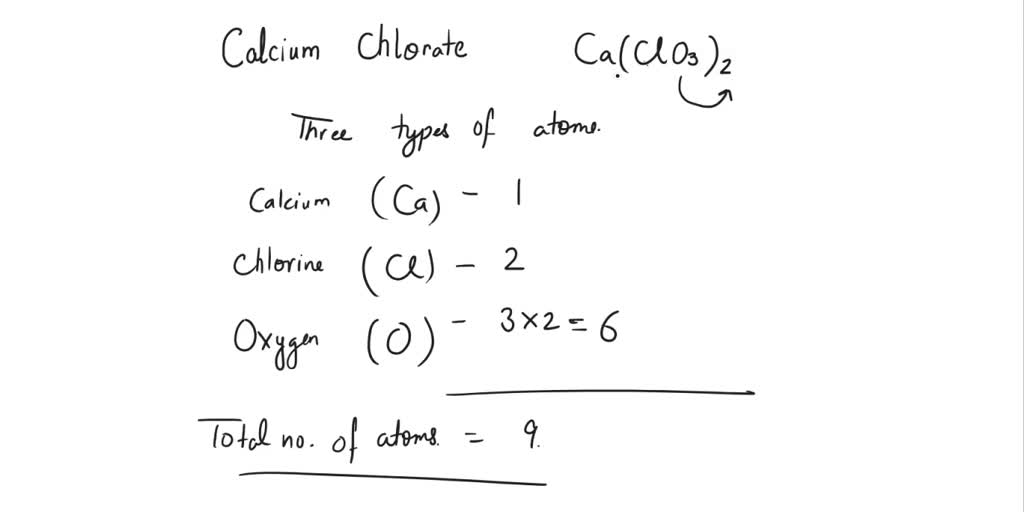 Calcium Chlorate Ca(ClO₃)₂
Three types of atoms.
Calcium (Ca) - 1
Chlorine (Cl) - 2
Oxygen (O) - 3×2=6
Total no. of atoms. = 9.